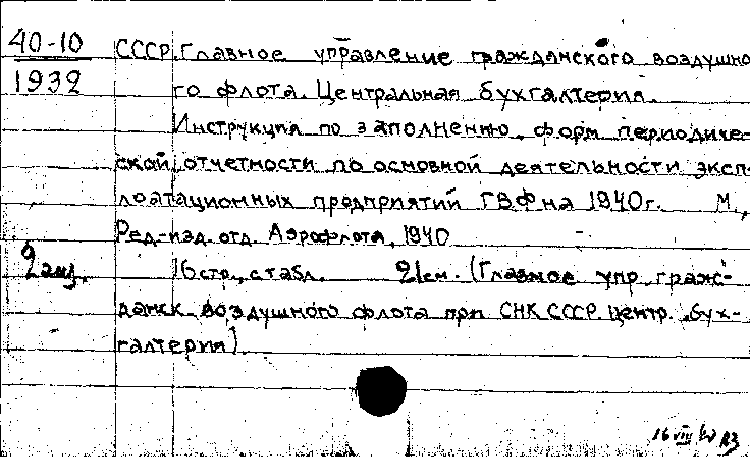 40-10 СССР. Главное управление гражданского воздушно
1932 го флота. Центральная бухгалтерия.
Инструкция по заполнению форм периодиче-
ской отчетности по основной деятельности эксп-
лоатационных предприятий ГВФ на 1940г. М.,
Ред.-изд. отд. Аэрофлота, 1940
2 экз. 16 стр., с табл. 21 см. (Главное упр. граж-
данск. воздушного флота при СНК СССР. Центр. бух-
галтерия)
16 VIII